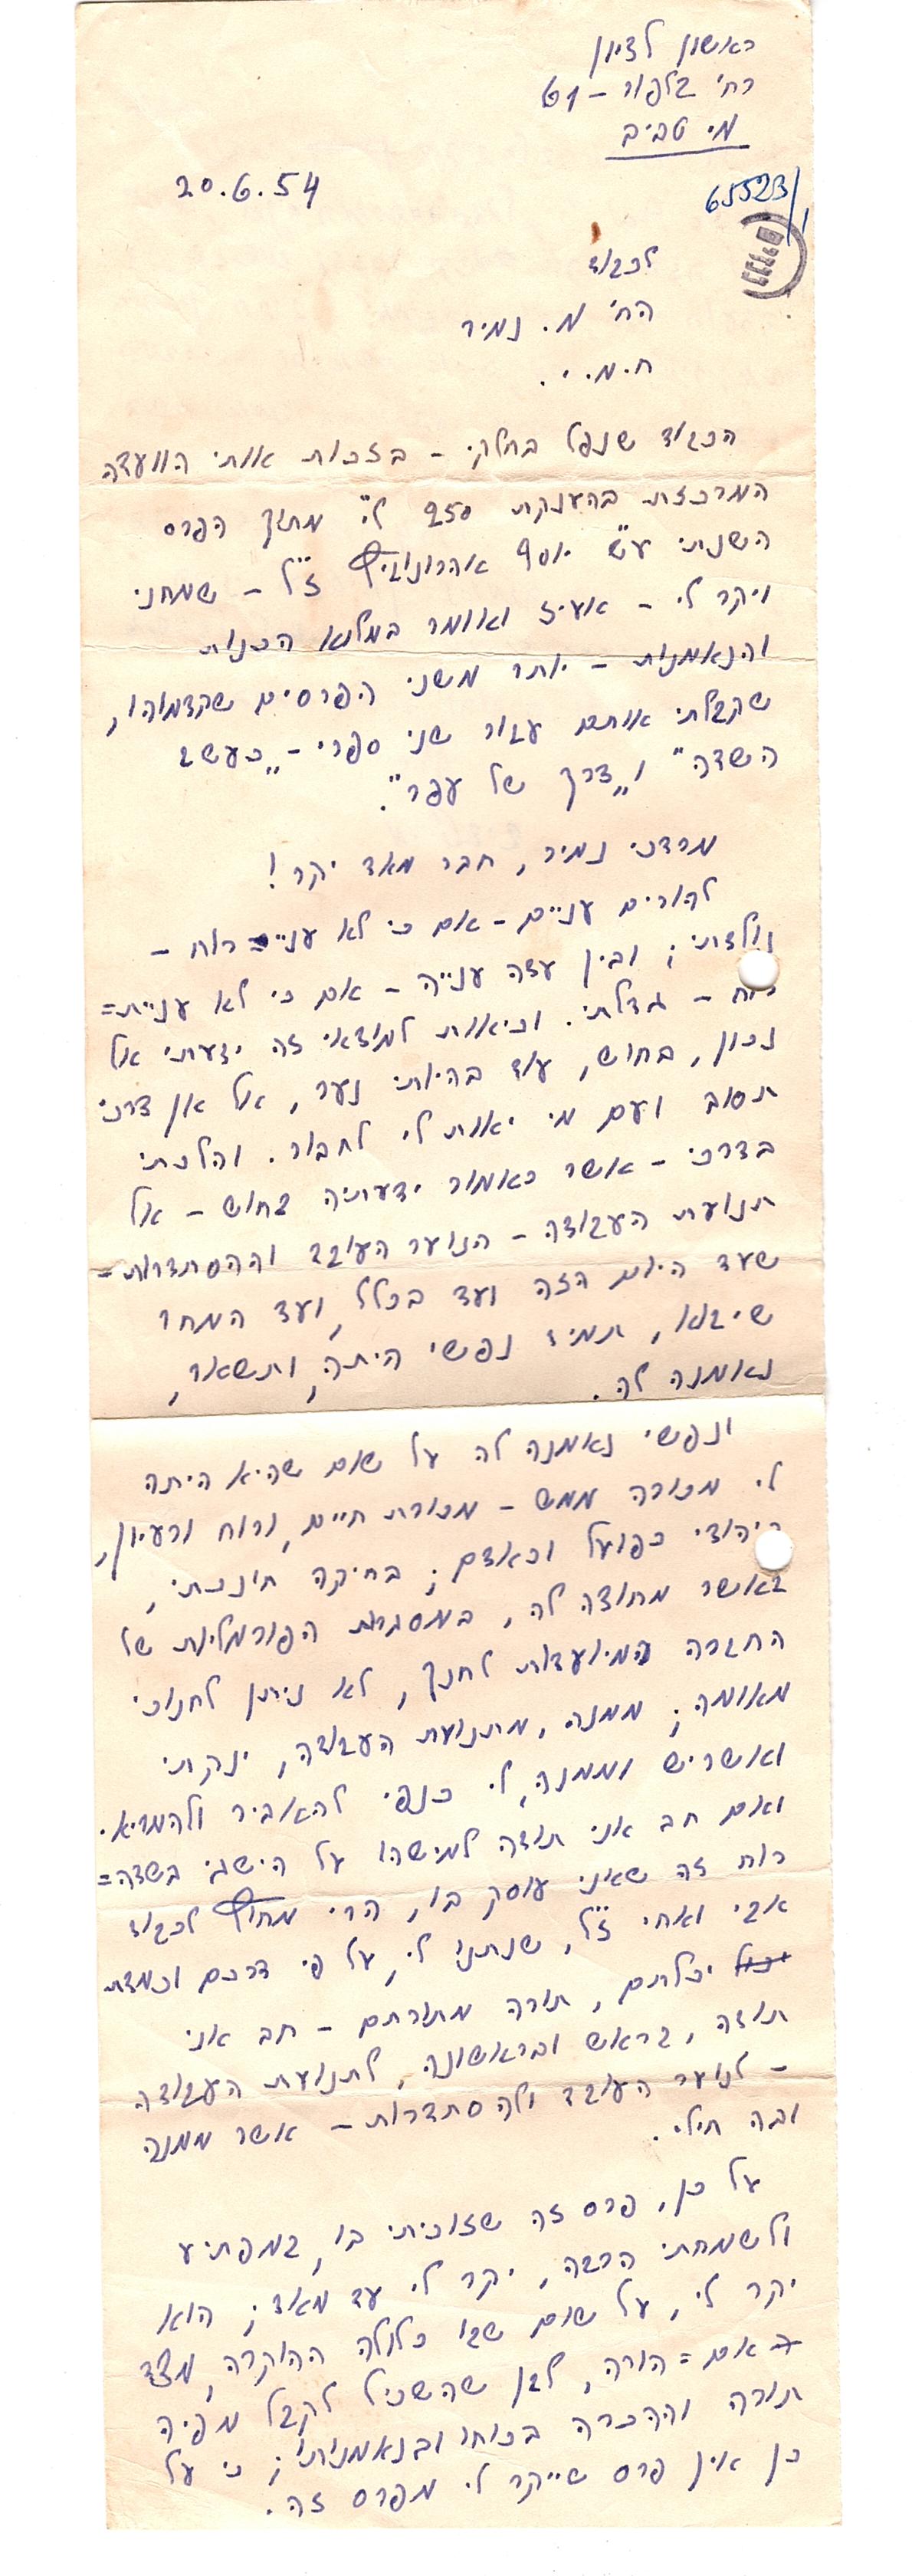 ראשון לציון
רח' בלפור - 61
מי טביב
20.6.54
65523/1
לכבוד
הח' מ. נמיר
ח.מ.י.
הכבוד שנפל בחלקי - בזכות אותי הוועדה
המרכזת בהענקת 250 ל"י מתוך הפרס
השנתי ע"ש יוסף אהרונוביץ ז"ל - שמחני
ויקר לי - אעיז ואומר במלוא הכנות
והנאמנות - יותר משני הפרסים שקדמוהו,
שקבלתי אותם עבור שני ספרי - „כעשב
השדה" ו„דרך של עפר".
מרדכי נמיר, חבר מאד יקר!
להורים עניים - אם כי לא עניי רוח -
נולדתי; ובין עדה ענייה - אם כי לא עניית=
רוח - גדלתי. וכיאות למוצאי זה ידעתי אל
נכון, בחוש, עוד בהיותי נער, אל אן דרכי
תסוב ועם מי יאות לי לחבור. והלכתי
בדרכי - אשר כאמור ידעתיה בחוש - אל
תנועת העבודה - הנוער העובד וההסתדרות -
שעד היום הזה ועד בכלל, ועד המחר
שיבוא, תמיד נפשי היתה, ותשאר,
נאמנה לה.
ונפשי נאמנה לה על שום שהיא היתה
לי מכורה ממש - מכורת חיים, ורוח ורעיון,
כיהודי כפועל וכאדם; בחיקה חונכתי,
באשר מחוצה לה, במסגרות הפורמליות של
החברה המיועדות לחנך, לא ניתן לחנוכי
מאומה; ממנה, מתנועת העבודה, ינקתי
ואשריש וממנה לי כנפי להאביר ולהמריא.
ואם חב אני תודה למישהו על הישגי בשדה=
רוח זה שאני עוסק בו, הרי מחוץ לכבוד
אבי ואחי ז"ל, שנתנו לי, על פי דרכם וכמדת
יכלתם, תורה מתורתם - חב אני
תודה, בראש ובראשונה, לתנועת העבודה
- לנוער העובד ולהסתדרות - אשר ממנה
ובה חילי.
על כן, פרס זה שזוכיתי בו, במפתיע
ולשמחתי הרבה, יקר לי עד מאוד; הוא
יקר לי, על שום שבו כלולה ההוקרה, מצד
אם = הורה, לבן שהשכיל לקבל מפיה
תורה וההכרה בכוחו ובנאמנותו; כי על
כן אין פרס שייקר לי מפרס זה.